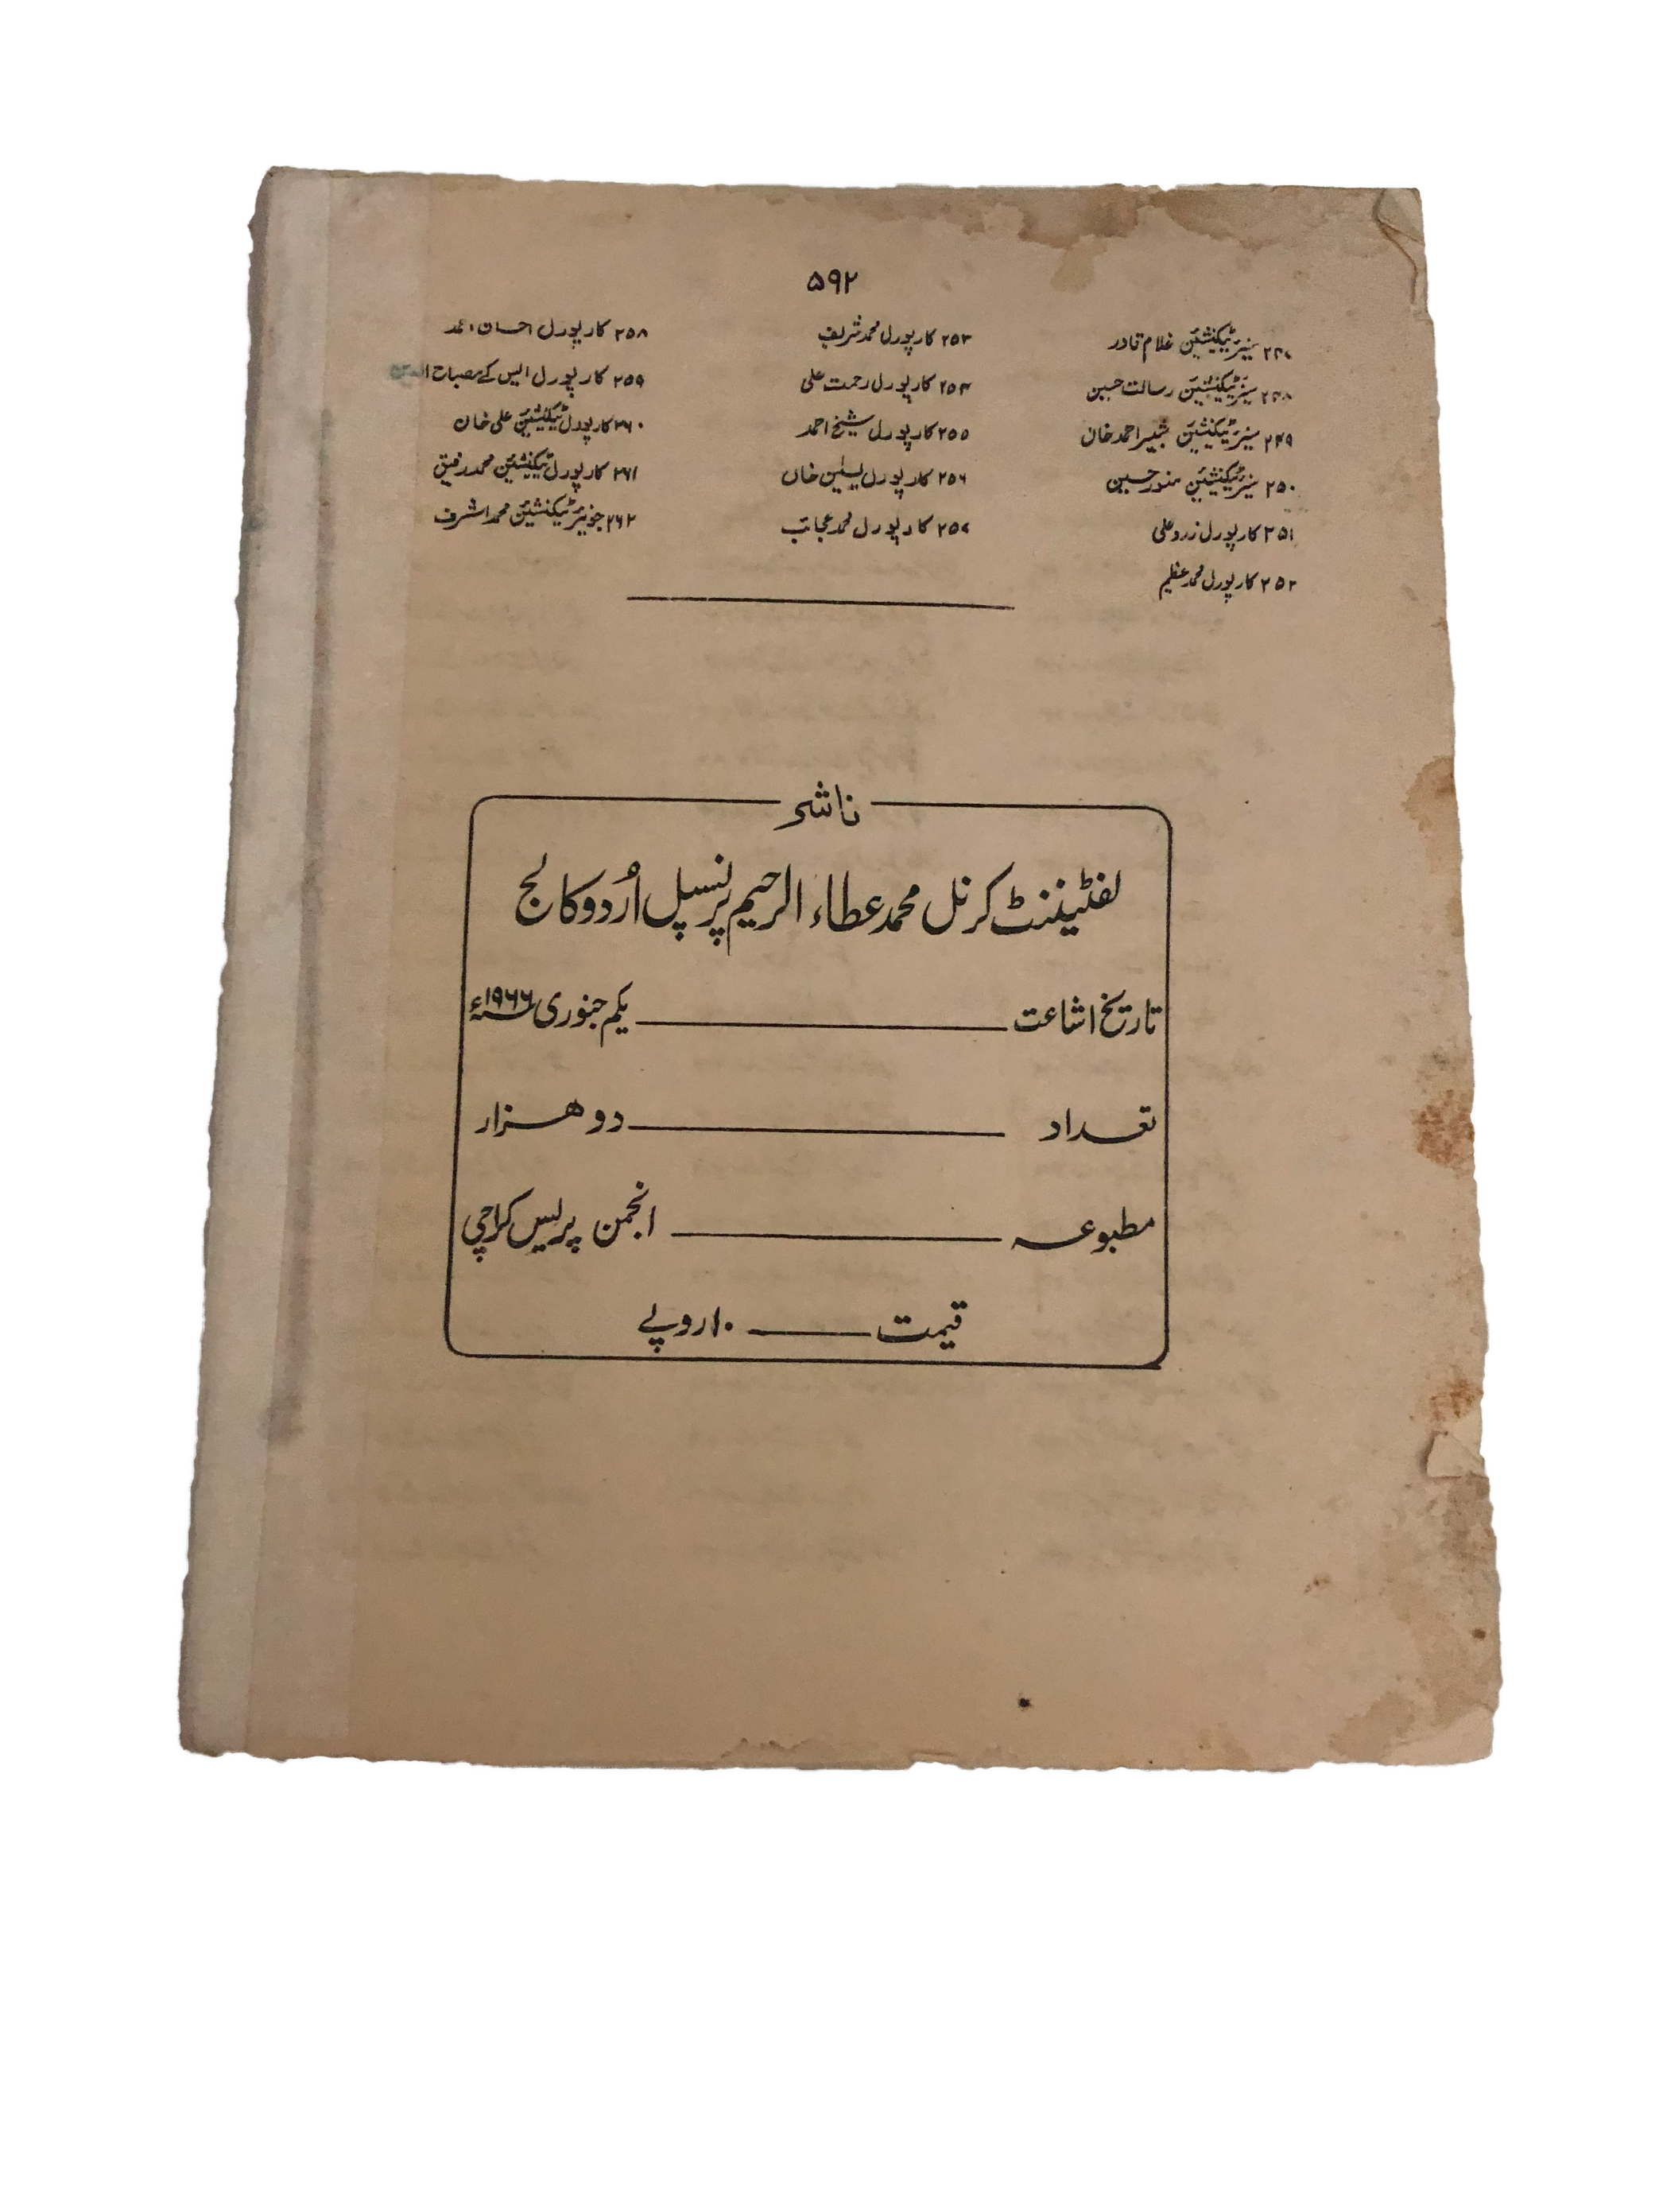 ۵۹۲
۲۴۷ سینیر ٹیکنیشین غلام قادر
۲۴۸ سینیر ٹیکنیشین رسالت حسین
۲۴۹ سینیر ٹیکنیشین شبیر احمد خان
۲۵۰ سینیر ٹیکنیشین منور حسین
۲۵۱ کارپورل زرد علی
۲۵۲ کارپورل محمد عظیم
۲۵۳ کارپورل محمد شریف
۲۵۴ کارپورل رحمت علی
۲۵۵ کارپورل شیخ احمد
۲۵۶ کارپورل یسٰین خاں
۲۵۷ کارپورل محمد عجائب
۲۵۸ کارپورل احسان احمد
۲۵۹ کارپورل ایس کے مصباح الدین
۲۶۰ کارپورل ٹیکنیشین علی خان
۲۶۱ کارپورل ٹیکنیشین محمد رفیق
۲۶۲ جونیر ٹیکنشین محمد اشرف
ناشر
لفٹیننٹ کرنل محمد عطاء الرحیم پرنسپل اُردو کالج
تاریخ اشاعت ــــــــ یکم جنوری ۱۹۶۶ء
تعداد ــــــــ دو ہزار
مطبوعہ ــــــــ انجمن پریس کراچی
قیمت ــــــــ ۱۰ روپے